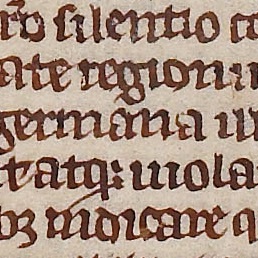 ro silentio co
ate regionum
germana in
tatq; uiola
bꝫ iudicare q